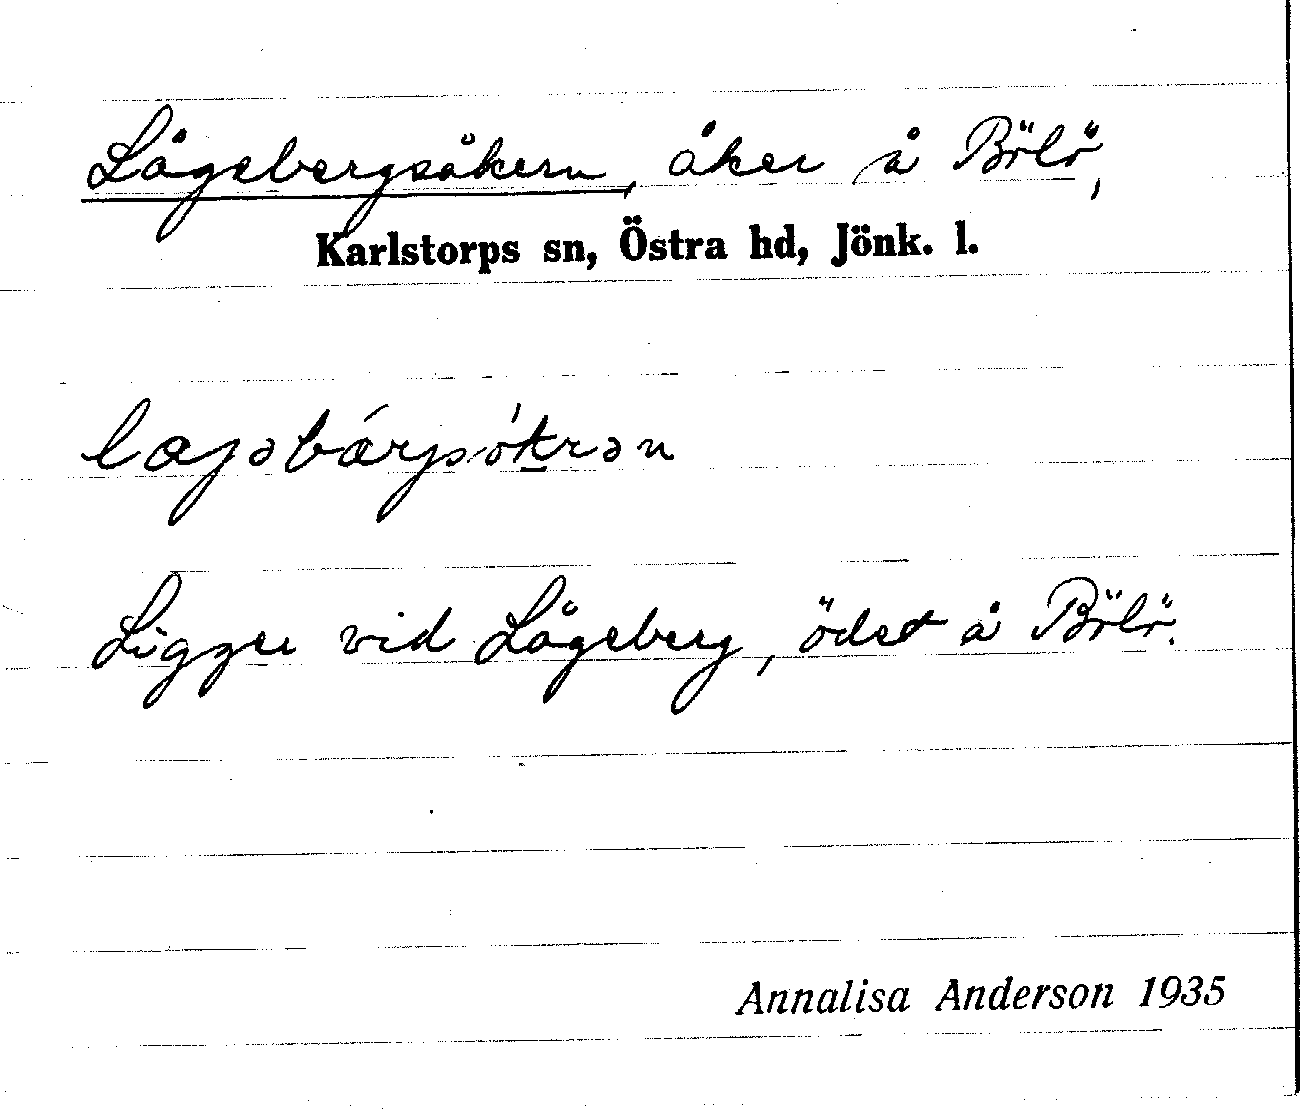 Lågebergsåkern, åker å Bölö,
Karlstorps sn, Östra hd, Jönk. l.
Ligger vid Lågeberg, ödet å Bölö.
Annalisa Anderson 1935